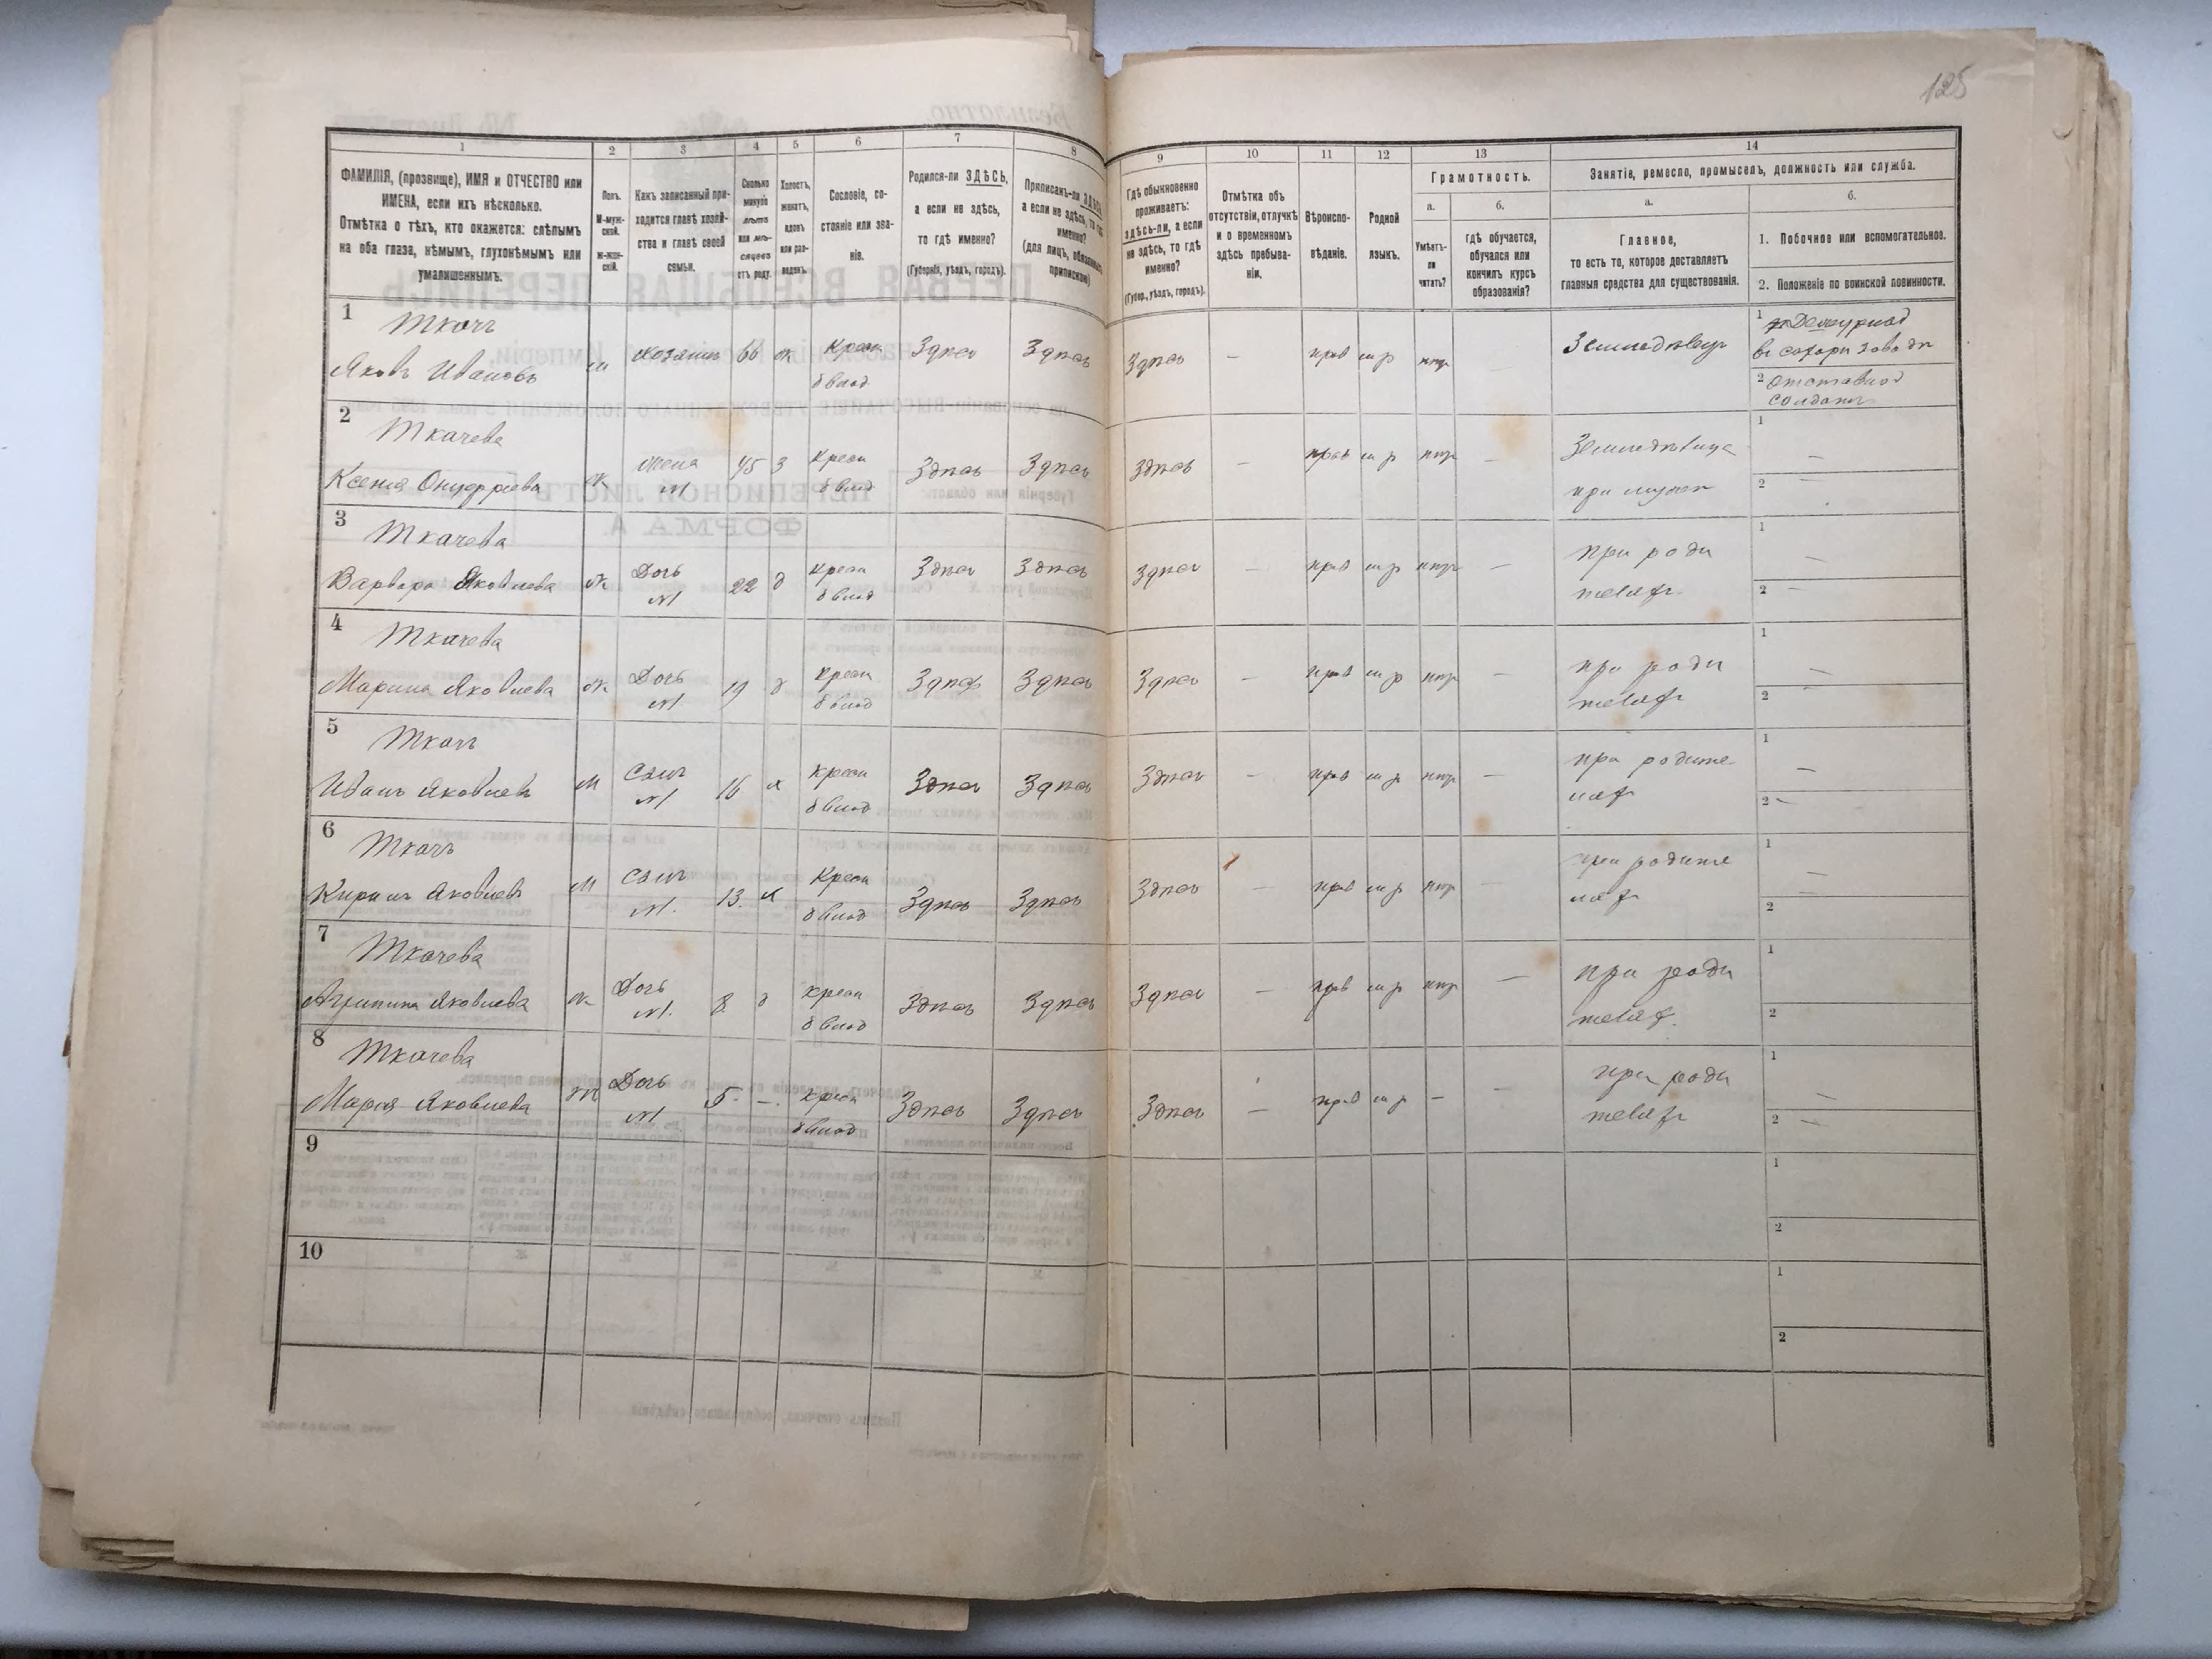 125
1 2 3 4 5 6 7 8 9 10 11 12 13 14
ФАМИЛІЯ, (прозвище), ИМЯ и ОТЧЕСТВО или
ИМЕНА, если ихъ нѣсколько.
Отмѣтка о тѣхъ, кто окажется: слѣпымъ
на оба глаза, нѣмымъ, глухонѣмымъ или
умалишеннымъ.
Полъ.
М-муж-
ской.
Ж-жен-
скій.
Какъ записанный при-
ходится главѣ хозяй-
ства и главѣ своей
семьи.
Сколько
минуло
лѣтъ
или мѣ-
сяцевъ
отъ роду.
Холостъ,
женатъ,
вдовъ
или раз-
веденъ.
Сословіе, со-
стояніе или зва-
ніе.
Родился-ли ЗДѢСЬ,
а если не здѣсь,
то гдѣ именно?
(Губернія, уѣздъ, городъ).
Приписанъ-ли ЗДѢСЬ,
а если не здѣсь, то гдѣ
именно?
(для лицъ, обязанныхъ
припискою)
Гдѣ обыкновенно
проживаетъ:
здѣсь-ли, а если
не здѣсь, то гдѣ
именно?
(Губер., уѣздъ, городъ).
Отмѣтка объ
отсутствіи, отлучкѣ
и о временномъ
здѣсь пребыва-
ніи.
Вѣроиспо-
вѣданіе.
Родной
языкъ.
Грамотность.
а.
Умѣетъ-
ли
читать?
б.
гдѣ обучается,
обучался или
кончилъ курсъ
образованія?
Занятіе, ремесло, промыселъ, должность или служба.
а.
Главное,
то есть то, которое доставляетъ
главныя средства для существованія.
б.
1. Побочное или вспомогательное.
2. Положеніе по воинской повинности.
1 Ткачъ
Яковъ Ивановъ м хозяинъ 66 ж Крест Здѣсь Здѣсь Здѣсь — прав м р нтр Земледѣлец
б влад
1
2 Отставной
солдатъ
2 Ткачева
Ксенія Онуфріева ж жена 45 з Крест Здѣсь Здѣсь Здѣсь — прав м р нтр —
№1 б влад
при мужѣ
1 —
2 —
3 Ткачева
Варвара Яковлева ж Дочь 22 д крест Здѣсь Здѣсь Здѣсь — прав м р нтр — при роди
№1 б влад телях
1 —
2 —
4 Ткачева
Марина Яковлева ж Дочь 19 д крест Здѣсь Здѣсь Здѣсь — прав м р нтр — при роди
№1 б влад телях
1 —
2 —
5 Ткачъ
Иванъ Яковлевъ м Сынъ 16 х крест Здѣсь Здѣсь Здѣсь — прав м р нтр — при родите
№1 б влад лях
1 —
2 —
6 Ткачъ
Кирилъ Яковлевъ м Сынъ 13. х Крест Здѣсь Здѣсь Здѣсь — прав м р нтр — при родите
№1. б влад лях
1 —
2
7 Ткачева
Агрипина Яковлева ж Дочь 8. д крест Здѣсь Здѣсь Здѣсь — прав м р нтр — при роди
№1. б влад телях.
1
2
8 Ткачева
Марія Яковлева ж Дочь 5. —. крест Здѣсь Здѣсь Здѣсь — прав м р — — при роди
№1 б влад телях
1 —
2 —
9
1
2
10
1
2